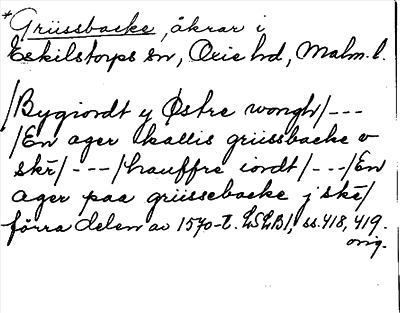 *Grüssbacke, åkrar i
Eskilstorps sn, Oxie hd, Malm. l.
/Bygiordt y Østre wongh/---
/En ager kallis grüssbacke v
skĕ/---/hauffre iordt/---/En
ager paa grüssebacke j skĕ/
förra delen av 1570-t. LSLB1, ss. 418, 419.
orig.